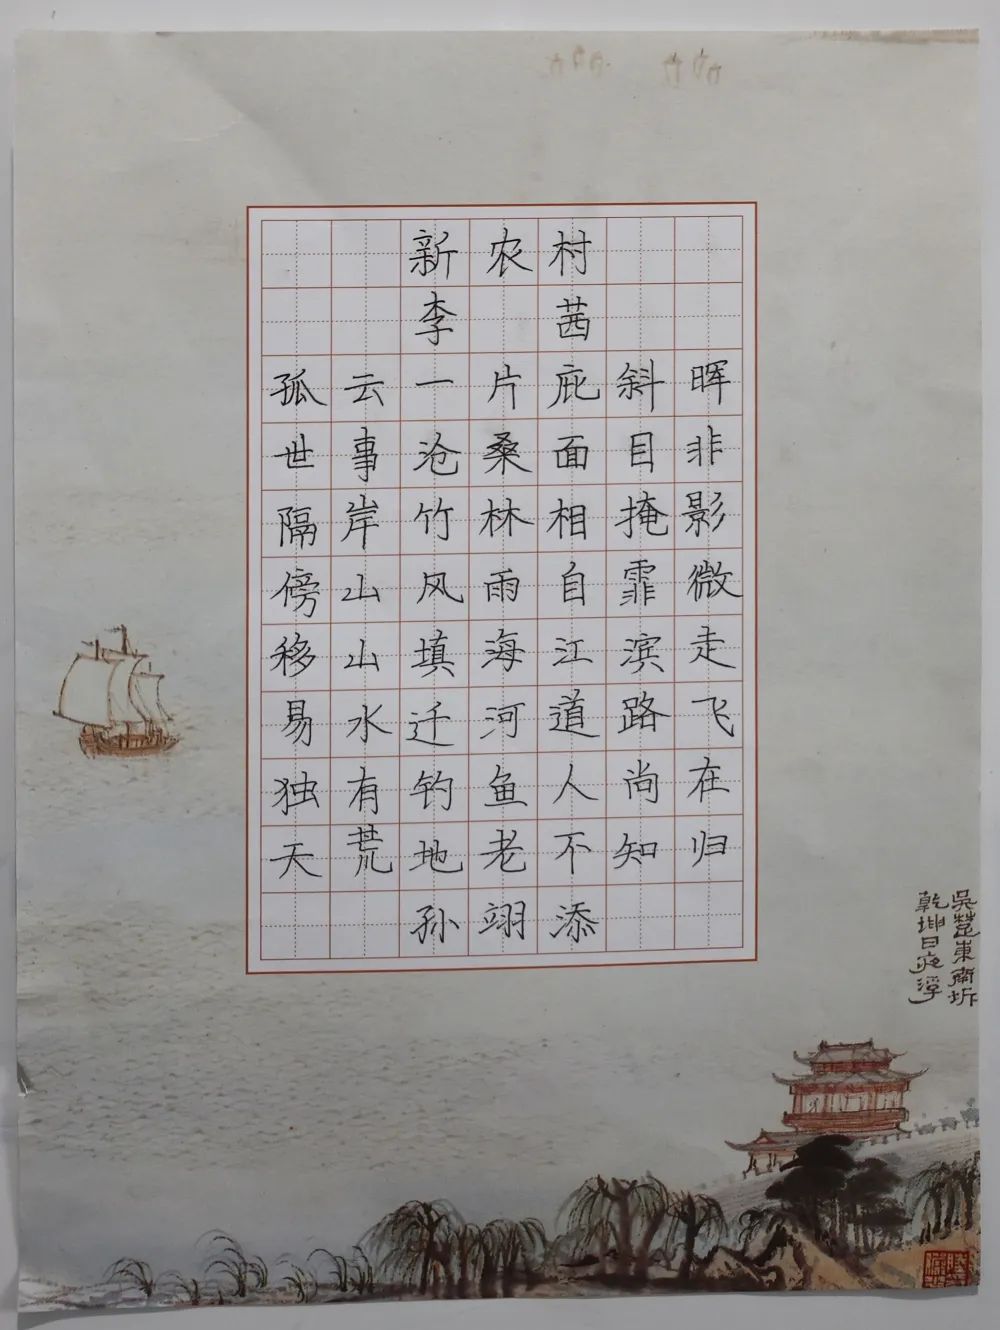 新农村
李茜
孤云一片庇斜晖
世事沧桑面目非
隔岸竹林相掩影
傍山风雨自霏微
移山填海江滨走
易水迁河道路飞
独有钓鱼人尚在
天荒地老不知归
孙翊添
吳楚東南坼
乾坤日夜浮